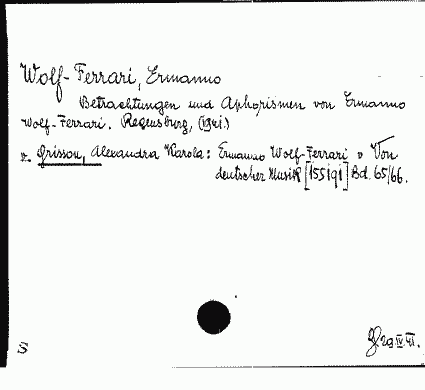 Wolf-Ferrari, Ermanno
Betrachtungen und Aphorismen von Ermanno
Wolf-Ferrari. Regensburg, (1941.)
Grisson, Alexandra Karola: Ermanno Wolf-Ferrari = Von
deutscher Musik [155191] Bd. 65/66.
S
29 IV 41.